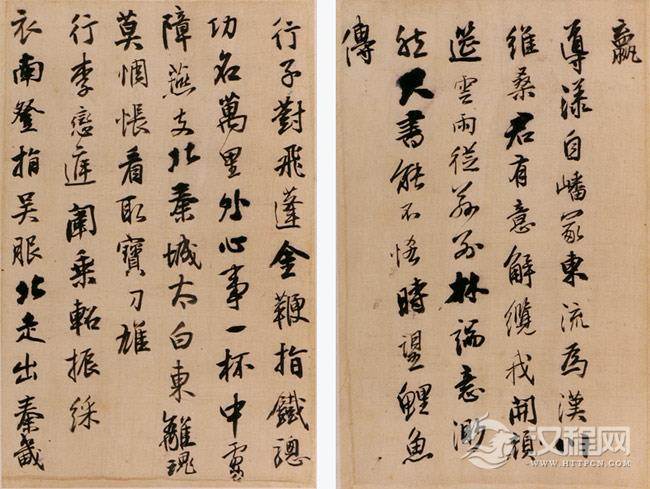 羸
導漾自嶓冢東流為漢川
維桑君有意解纜我開
筵雲雨從茲別林端意渺
然尺書能不悋時望鯉魚
傳
行子對飛蓬金鞭指鐵驄
功名萬里外心事一杯中虜
障燕支北秦城太白東離魂
莫惆悵看取寶刀雄
行李戀庭闈乘軺振綵
衣南登指吳服北走出秦畿
汉程网
WWW.HTTPCN.COM